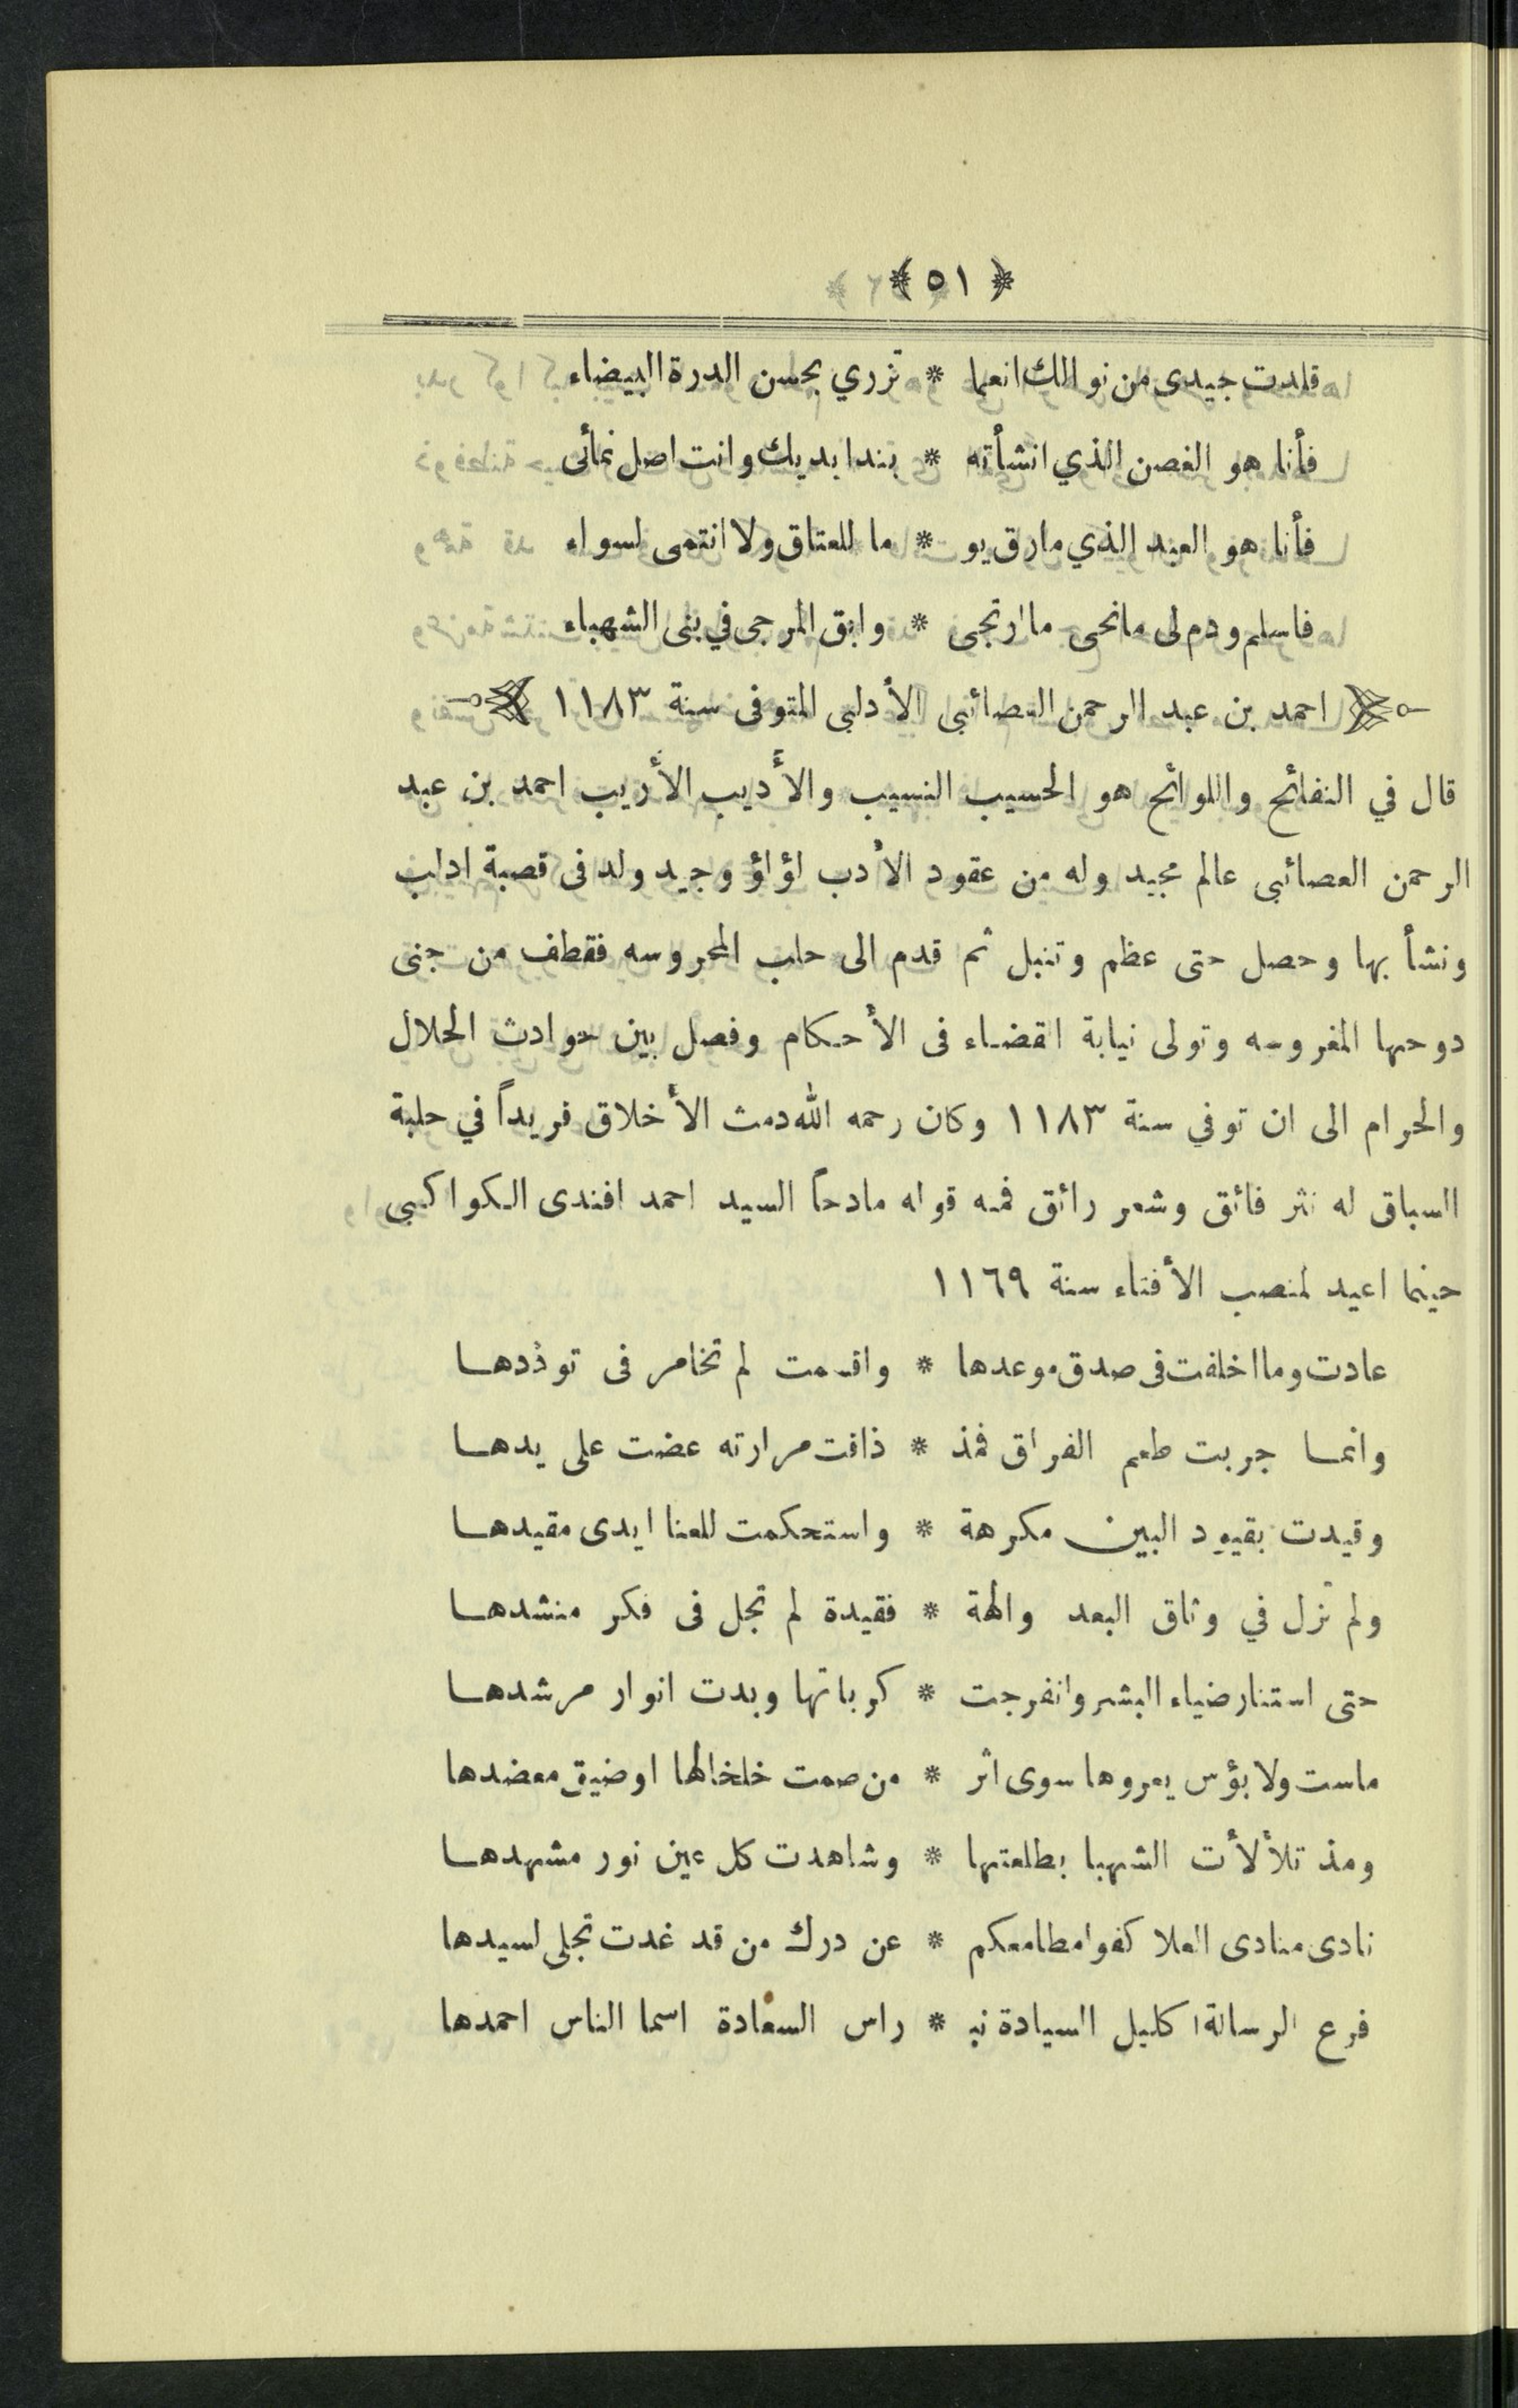 ﴿ ٥١ ﴾
قلدت جيدى من نوالك انعما * تزري بحسن الدرة البيضاء
فأنا هو الغصن الذي انشأته * بندا يديك وانت اصل نمائى
فأنا هو العبد الذي مارق يو * ما للعتاق ولا انتمى لسواء
فاسلم ودم لى مانحى ما ارتجى * وابق المرجى في بنى الشهباء
احمد بن عبد الرحمن العصائبي الأدلبى المتوفى سنة ١١٨٣
قال في النفائح واللوائح هو الحسيب النسيب والأديب الأريب احمد بن عبد
الرحمن العصائبى عالم مجيد وله من عقود الأدب لؤلؤ وجيد ولد فى قصبة ادلب
ونشأ بها وحصل حتى عظم وتنبل ثم قدم الى حلب المحروسه فقطف من جنى
دوحها المغروسه وتولى نيابة القضاء فى الأحكام وفصل بين حوادث الحلال
والحرام الى ان توفي سنة ١١٨٣ وكان رحمه الله دمث الأخلاق فريداً في حلبة
السباق له نثر فائق وشعر رائق فمنه قوله مادحاً السيد احمد افندى الكواكبى
حينما اعيد لمنصب الأفتاء سنة ١١٦٩
عادت وما اخلفت فى صدق موعدها * واقسمت لم تخامر فى توددها
وانما جربت طعم الفراق فمذ * ذاقت مرارته عضت على يدها
وقيدت بقيود البين مكرهة * واستحكمت للعنا ايدى مقيدها
ولم تزل في وثاق البعد والهة * فقيدة لم تجل فى فكر منشدها
حتى استنار ضياء البشر وانفرجت * كرباتها وبدت انوار مرشدها
ماست ولا بؤس يعروها سوى اثر * من صمت خلخالها او ضيق معضدها
ومذ تلألأت الشهبا بطلعتها * وشاهدت كل عين نور مشهدها
نادى منادى العلا كفوا مطامعكم * عن درك من قد غدت تجلى لسيدها
فرع الرسالة اكليل السيادة نبـ * راس السعادة اسما الناس احمدها